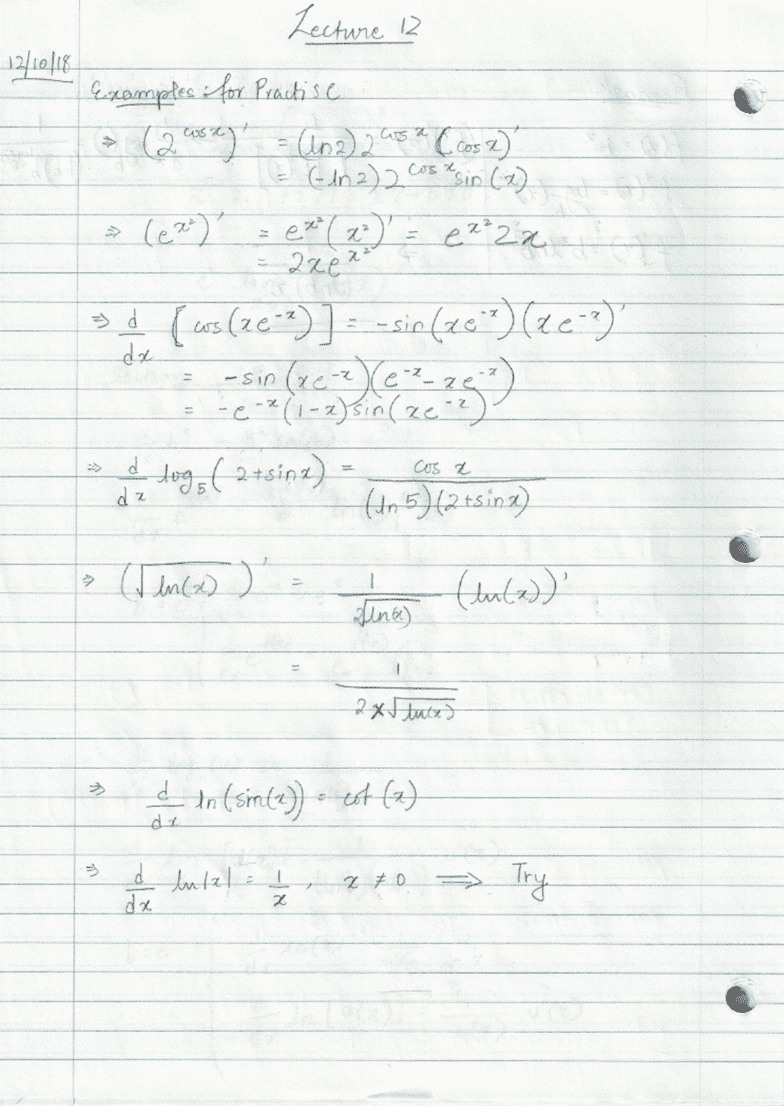 Lecture 12
12/10/18
Examples: for Practise
⇒ (2^cos x)' = (ln 2) 2^cos x (cos x)'
= (-ln 2) 2^cos x sin(x)
⇒ (e^x²)' = e^x² (x²)' = e^x² 2x
= 2xe^x²
⇒ d/dx [cos(xe^-x)] = -sin(xe^-x)(xe^-x)'
= -sin(xe^-x)(e^-x - xe^-x)
= -e^-x(1-x)sin(xe^-x)
⇒ d/dx log₅(2+sinx) = cos x / (ln 5)(2+sinx)
⇒ (√ln(x))' = 1/2√ln(x) (ln(x))'
= 1/2x√ln(x)
⇒ d/dx ln(sin(x)) = cot(x)
⇒ d/dx ln|x| = 1/x, x ≠ 0 ⟹ Try